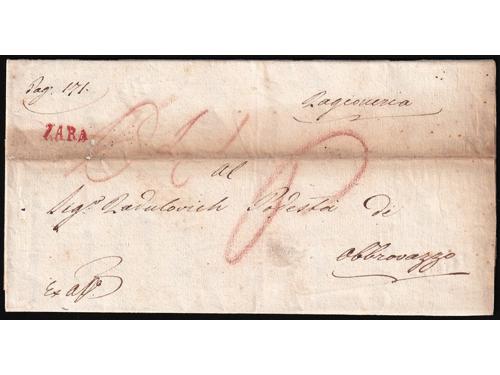 Pag. 171.
Ragioneria
ZARA
al
Sig.r Radulovich Podestà di
Obbrovazzo
Ex off.o